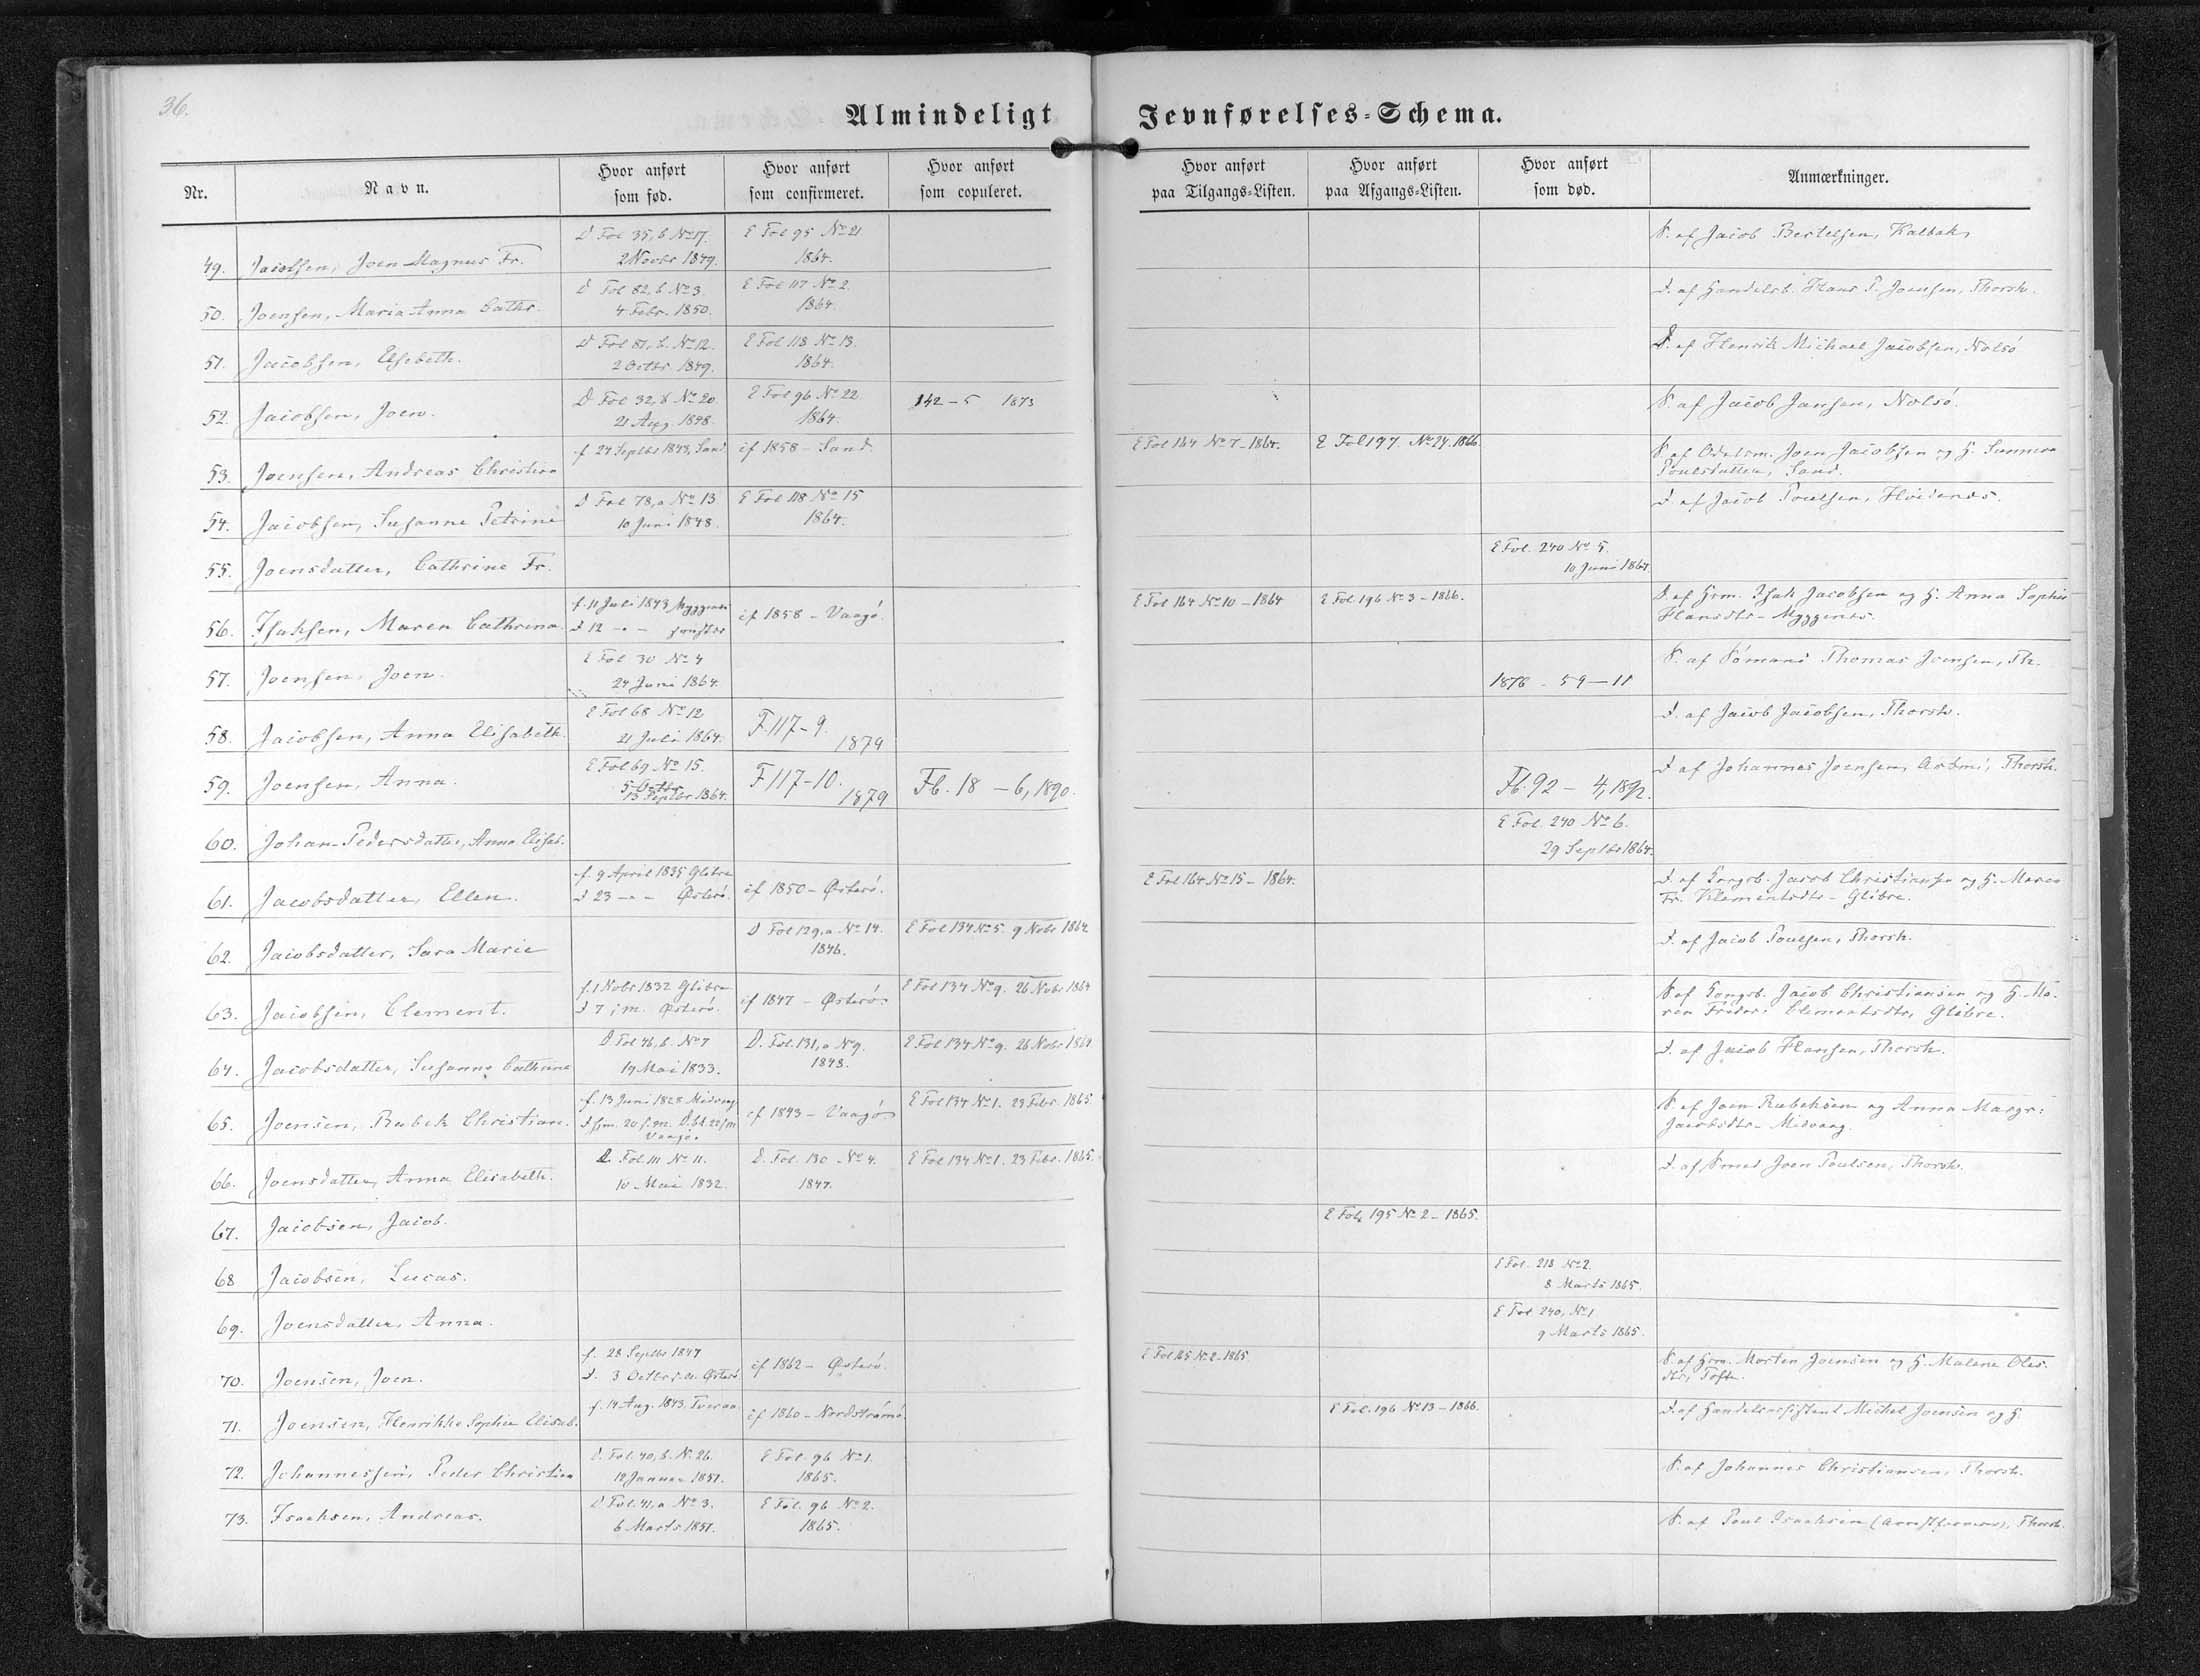 36.
Almindeligt Jevnførelses-Schema.
Nr. Navn. Hvor anført som fød. Hvor anført som confirmeret. Hvor anført som copuleret. Hvor anført paa Tilgangs-Listen. Hvor anført paa Afgangs-Listen. Hvor anført som død. Anmærkninger.
49. Jacobsen, Joen Magnus Fr. D Fol 35, b No 17. 2 Novbr 1849. E Fol 95 No 21 1864. S. af Jacob Bertelsen, Kalbak,
50. Joensen, Maria Anna Cathr. D Fol 82, b No 3. 4 Febr. 1850. E Fol 117 No 2. 1864. D. af Handelsb. Hans P. Joensen, Thorsh.
51. Jacobsen, Elsebeth. D Fol 81, b. No 12. 2 Octbr 1849. E Fol 118 No 13. 1864. D. af Henrik Michael Jacobsen, Nolsø
52. Jacobsen, Joen. D Fol 32, b No 20. 21 Aug. 1848. E Fol 96 No 22. 1864. 142-5 1873 S. af Jacob Jansen, Nolsø.
53. Joensen, Andreas Christian f. 24 Septbr 1843, Sand if 1858 - Sand. E Fol 164 No 7-1864. E Fol 197. No 24. 1866 S. af Odelsm. Joen Jacobsen og H. Sunneva Poulsdatter, Sand.
54. Jacobsen, Susanne Petrine D Fol 78, a No 13 10 Juni 1848. E Fol 118 No 15 1864. D. af Jacob Poulsen, Høidenæs.
55. Joensdatter, Cathrine Fr. E Fol. 240 No 5. 10 Juni 1864.
56. Isaksen, Maren Cathrina f. 11 Juli 1843 Myggenæs D 12 - - if 1858 - Vaagø. E Fol 164 No 10 - 1864 E Fol 196 No 3 - 1866. D. af Hrm. Isak Jacobsen og H. Anna Sophie Hansdtr - Myggenæs.
57. Joensen, Joen. E Fol 30 No 4 24 Juni 1864. 1876 - 59-11 S. af Sømand Thomas Joensen, Th.
58. Jacobsen, Anna Elisabeth. E Fol 68 No 12 21 Juli 1864. F. 117-9. 1879 D. af Jacob Jacobsen, Thorsh.
59. Joensen, Anna. E Fol 69 No 15. 5 Octbr 13 Septbr 1864. F 117-10. 1879 Fb. 18 - 6, 1890. Fb. 92 - 4, 1892. D. af Johannes Joensen, Thorsh.
60. Johan-Pedersdatter, Anna Elisab. E Fol. 240 No 6. 29 Septbr 1864.
61. Jacobsdatter, Ellen. f. 9 April 1835 Glibre D 23 - - Østerø. if 1850 - Østerø. E Fol 164 No 15 - 1864. D. af Kongsb. Jacob Christiansen og H. Maren Fr. Klementsdtr - Glibre.
62. Jacobsdatter, Sara Marie D Fol 129, a No 14. 1846. E Fol 134 No 5. 9 Nobr 1864 D. af Jacob Poulsen, Thorsh.
63. Jacobsen, Clement. f. 1 Nobr 1832 Glibre D 7 s. m. Østerø. if 1847 - Østerø. E Fol 134 No 9. 26 Nobr 1864 S. af Kongsb. Jacob Christiansen og H. Maren Frider: Clementsdtr, Glibre.
64. Jacobsdatter, Susanne Cathrine D Fol 46, b. No 7 14 Mai 1833. D. Fol. 131, a No 9. 1848. E Fol 134 No 9. 26 Nobr 1864 D. af Jacob Hansen, Thorsh.
65. Joensen, Rubek Christian. f. 13 Juni 1828 Midvaag Vaagø. if 1843 - Vaagø E Fol 134 No 1. 23 Febr. 1865 S. af Joen Rubeksen og Anna Margr: Jacobsdtr - Midvaag.
66. Joensdatter, Anna Elisabeth. D. Fol 111 No 11. 10 Mai 1832. D. Fol. 130 No 4. 1847. E Fol 134 No 1. 23 Febr. 1865. D. af Smed Joen Poulsen, Thorsh.
67. Jacobsen, Jacob. E Fol. 195 No 2 - 1865.
68 Jacobsen, Lucas. E Fol. 218 No 2. 8 Marts 1865.
69. Joensdatter, Anna. E Fol 240, No 1 9 Marts 1865.
70. Joensen, Joen. f. 28 Septbr 1847 D. 3 Octbr s. A. Østerø if 1862 - Østerø. E Fol 165 No 2-1865 S. af Hrm. Morten Joensen og H. Malene Olesdtr, Tofte.
71. Joensen, Henrikke Sophie Elisab. f. 14 Aug. 1843, Tveraa if 1860 - Nordstrømø. E Fol. 196 No 13 - 1866. D. af Handelsassistent Michel Joensen og H.
72. Johannessen, Peder Christian D. Fol. 40, b. No 26. 12 Januar 1851. E Fol. 96 No 1. 1865. S. af Johannes Christiansen, Thorsh.
73. Isaaksen, Andreas. D Fol. 41, a No 3. 6 Marts 1851. E Fol. 96 No 2. 1865. S. af Poul Isaaksen (Arrestforvarer), Thorsh.